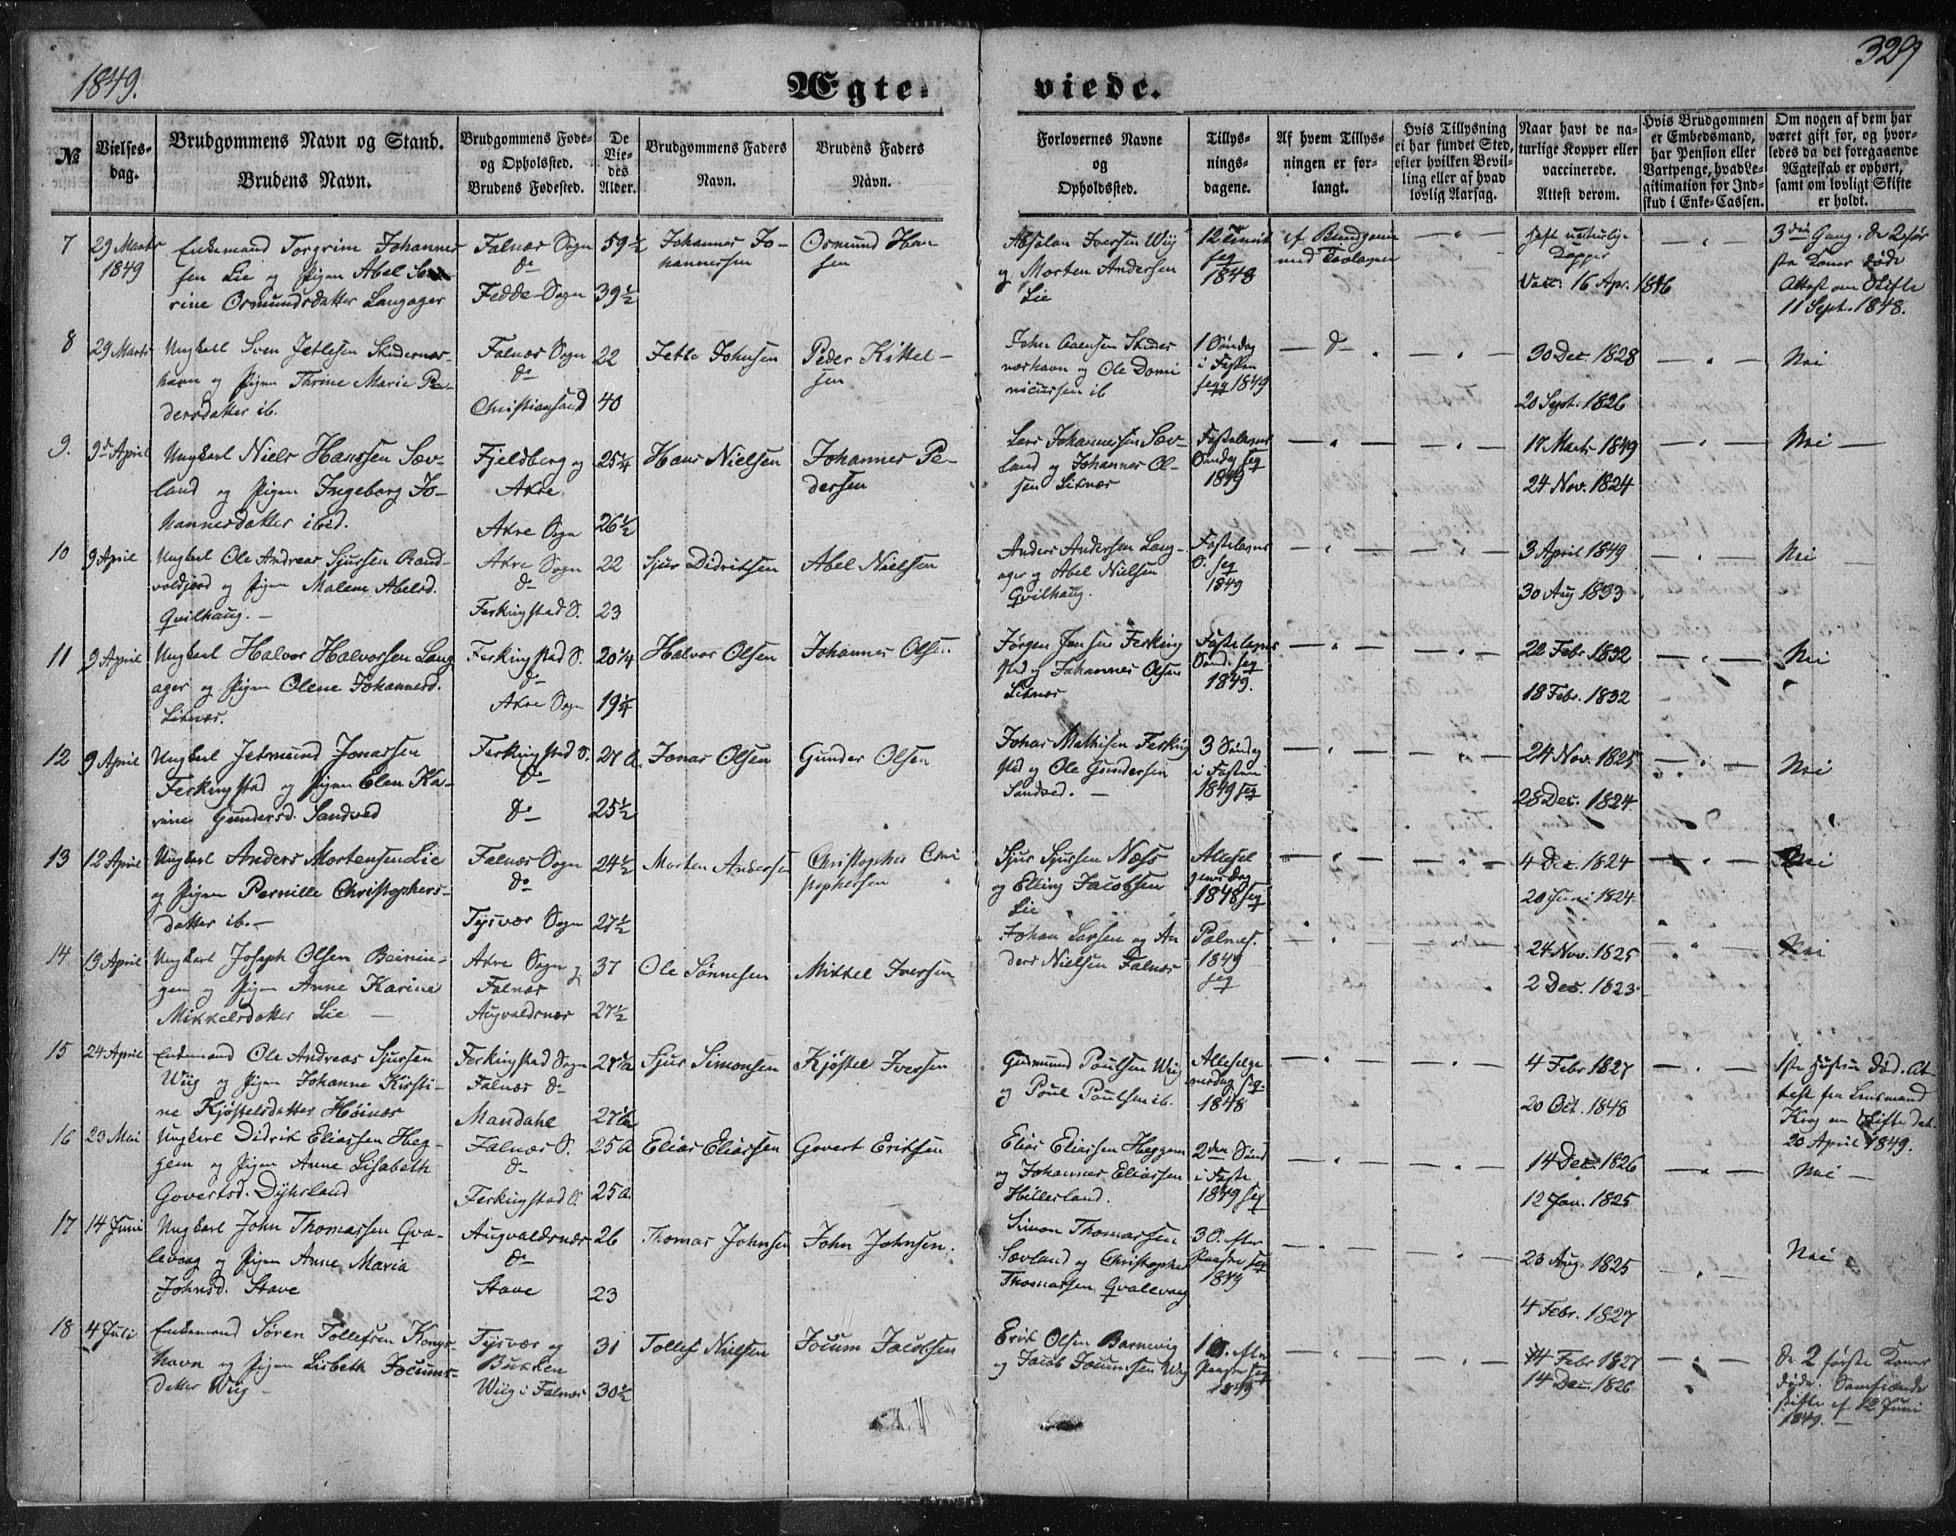 1849.
Ægte-
viede.
329
№
Vielses-
dag.
Brudgommens Navn og Stand.
Brudens Navn.
Brudgommens Føde-
og Opholdssted.
Brudens Fødested.
De
Vie-
des
Alder.
Brudgommens Faders
Navn.
Brudens Faders
Navn.
Forlovernes Navne
og
Opholdssted.
Tillys-
nings-
dagene.
Af hvem Tillys-
ningen er for-
langt.
Hvis Tillysning
ei har fundet Sted,
efter hvilken Bevil-
ling eller af hvad
lovlig Aarsag.
Naar havt de na-
turlige Kopper eller
vaccinerede.
Attest derom.
Hvis Brudgommen
er Embedsmand,
har Pension eller
Vartpenge, hvad Le-
gitimation for Ind-
skud i Enke-Cassen.
Om nogen af dem har
været gift før, og hvor-
ledes da det foregaaende
Ægteskab er ophørt,
samt om lovligt Skifte
er holdt.
7
29 Marts
1849
Enkemand Torgrim Johannes
sen Lie og Pigen Abel
rine Osmundsdatter Langager
Falnæs Sogn
do
Fedde Sogn
59½
39½
Johannes Jo-
hannessen
Osmund Han
sen
Absalon Iversen Wiig
og Morten Andersen
Lie
12 Trinit
seq
1848
af Brudgom
med Forlovere
hafte naturlige
Kopper
Vacc. 16 Apr. 1816
3die Gang. De 2 før
ste Koner døde
Attest om Skifte
11 Sept. 1848.
8
29 Marts
Ungkarl Sven Jetlesen Skudesnæs-
havn og Pigen Thrine Marie Pe-
dersdatter ib.
Falnæs Sogn
do
Christiansand
22
40
Jetle Johnsen
Peder Kittel-
sen
John Skudes
næshavn og Ole Domi
nicussen ib
1 Søndag
i Fasten
seqq 1849
do
30 Dec. 1828
20 Sept. 1826
Nei
9.
9de April
Ungkarl Niels Hanssen Sæv-
land og Pigen Ingeborg Jo-
hannesdatter ibid.
Fjeldberg og
Akre
Akre Sogn
25¼
26½
Hans Nielsen
Johannes Pe-
dersen
Lars Johannessen Sæv-
land og Johannes Ol-
sen Litnæs
Fastelavns
Søndag seq
1849
17 Marts 1849
24 Nov. 1824
Nei
10
9 April
Ungkarl Ole Andreas Sjursen Sand-
voldjord og Pigen Malene Abelsd.
Qvilhaug.
Akre Sogn
do
Ferkingstad S.
22
23
Sjur Didriksen
Abel Nielsen
Anders Andersen Lang-
ager og Abel Nielsen
Qvilhaug.
Fastelavns
S. seq
1849
3 April 1849
30 Aug 1833
Nei
11
9 April
Ungkarl Halvor Halvorsen Lang
ager og Pigen Olene Johannesd.
Litnæs.
Ferkingstad S.
do
Akre Sogn
20¼
19¼
Halvor Olsen
Johannes Olsen
Jørgen Jensen Ferking
stad og Johannes Olsen
Litnæs
Fastelavns
Sønd. seq
1849.
22 Febr 1832
18 Febr. 1832
Nei
12
9 April
Ungkarl Jetmund Jonassen
Ferkingstad og Pigen Elen Ka-
rine Gundersd. Sandved
Ferkingstad S.
do
do
27 A.
25½
Jonas Olsen
Gunder Olsen
Johas Mathisen Ferking
stad og Ole Gundersen
Sandved.
3 Søndag
i Fasten
1849 seq
24 Nov. 1825
28 Dec. 1824
Nei
13
12 April
Ungkarl Anders Mortensen Lie
og Pigen Pernille Christophers-
datter ib.
Falnæs Sogn
do
Tysvær Sogn
24½
27½
Morten Andersen
Christopher Chri
stophersen
Sjur Sjursen Næss
og Elling Jacobsen
Lie
Allehel
gensdag
1848 seq
4 Dec. 1824
20 Juni 1824
Nei
14
19 April
Ungkarl Joseph Olsen Beinin-
gen og Pigen Anne Karine
Mikkelsdatter Lie
Akre Sogn og
Falnæs
Augvaldsnæs
37
27½
Ole Sønnesen
Mikkel Iversen
Johan Larsen og An
ders Nielsen Falnæs
Palmes.
1849
seq
24 Nov. 1825
2 Dec. 1823
Nei
15
24 April
Enkemand Ole Andreas Sjursen
Wiig og Pigen Johanne Kirsti-
ne Kjøstelsdatter Høinæs
Ferkingstad Sogn
Falnæs do
Mandahl
27½
27½
Sjur Simonsen
Kjøstel Iversen
Gudmund Poulsen Wiig
og Poul Poulsen ib.
Allehelge
nsdag seq.
1848
4 Febr 1827
20 Oct. 1848
1ste Hustru død. At-
test fra Lensmand
Krog om Skifte dat.
20 April 1849.
16
20 Mai
Ungkarl Didrik Eliassen Heg-
gem og Pigen Anne Lisabeth
Govertsd. Dyhrland
Falnæs S.
do
Ferkingstad S.
25 A
25 A.
Elias Eliassen
Govert Eriksen
Elias Eliassen Heggem
og Johannes Eliassen
Hillerland.
2den Sønd
i Faste
1849 seq
14 Dec. 1826
12 Jan. 1825
Nei
17
14 Juni
Ungkarl John Thomassen Qva-
levaag og Pigen Anne Maria
Johnsd. Stave
Augvaldsnæs
do
Stave
26
23
Thomas Johnsen
John Johnsen.
Simon Thomassen
Sævland og Christopher
Thomassen Qvalevaag
3 S. efter
Paaske seq
1849
23 Aug. 1825
4 Febr. 1827
Nei
18
4 Juli
Enkemand Søren Tollefsen Kongs-
havn og Pigen Lisbeth Jocums-
datter Wiig
Tysvær og
Bukken
Wiig i Falnæs
31
30½
Tollef Nielsen
Jocum Jacobsen
Erik Olsen Barnevig
og Jacob Jocumsen Wiig
1 S. efter
Paaske seq
1849
14 Febr 1827
14 Dec. 1826
De 2 første Koner
døde. Samfrænde
skifte af 12 Juni
1849.